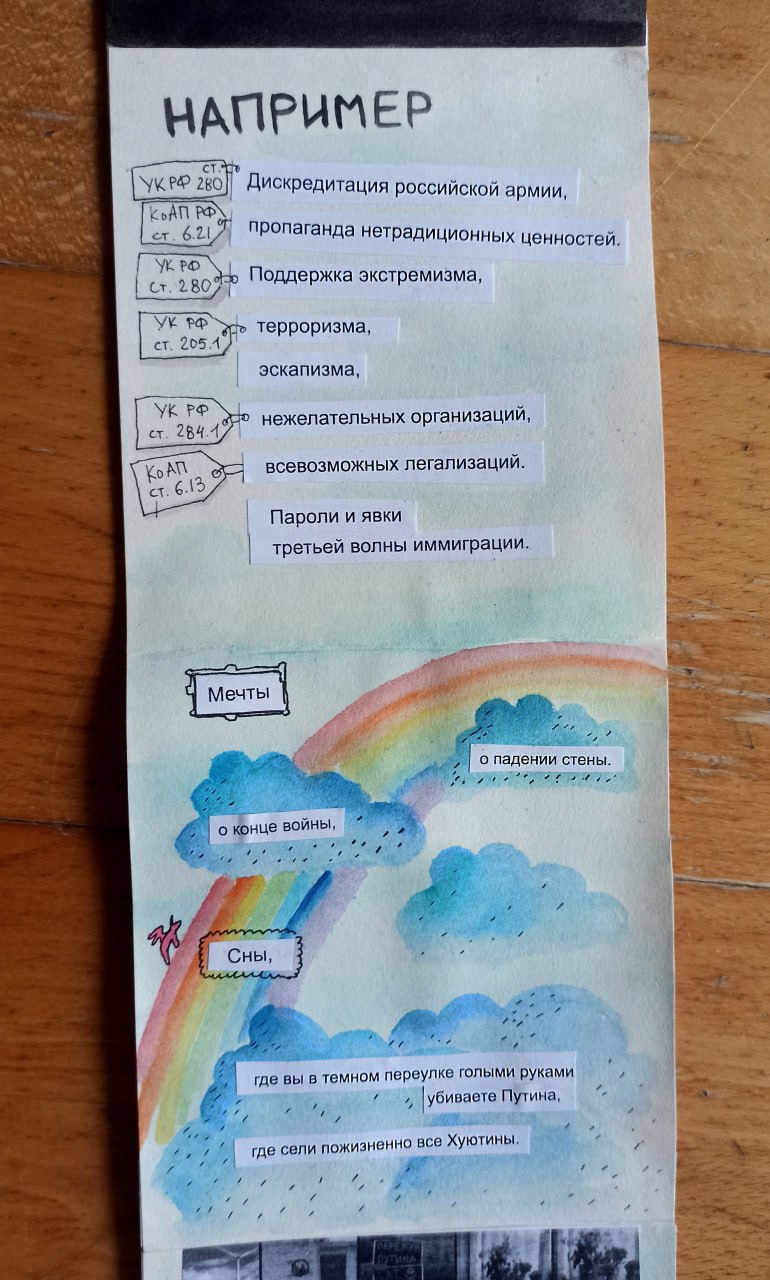 НАПРИМЕР
ст.
УК РФ 280
Дискредитация российской армии,
КоАП РФ
ст. 6.21
пропаганда нетрадиционных ценностей.
УК РФ
ст. 280
Поддержка экстремизма,
УК РФ
ст. 205.1
терроризма,
эскапизма,
УК РФ
ст. 284.1
нежелательных организаций,
КоАП
ст. 6.13
всевозможных легализаций.
Пароли и явки
третьей волны иммиграции.
Мечты
о падении стены.
о конце войны,
Сны,
где вы в темном переулке голыми руками
убиваете Путина,
где сели пожизненно все Хуютины.